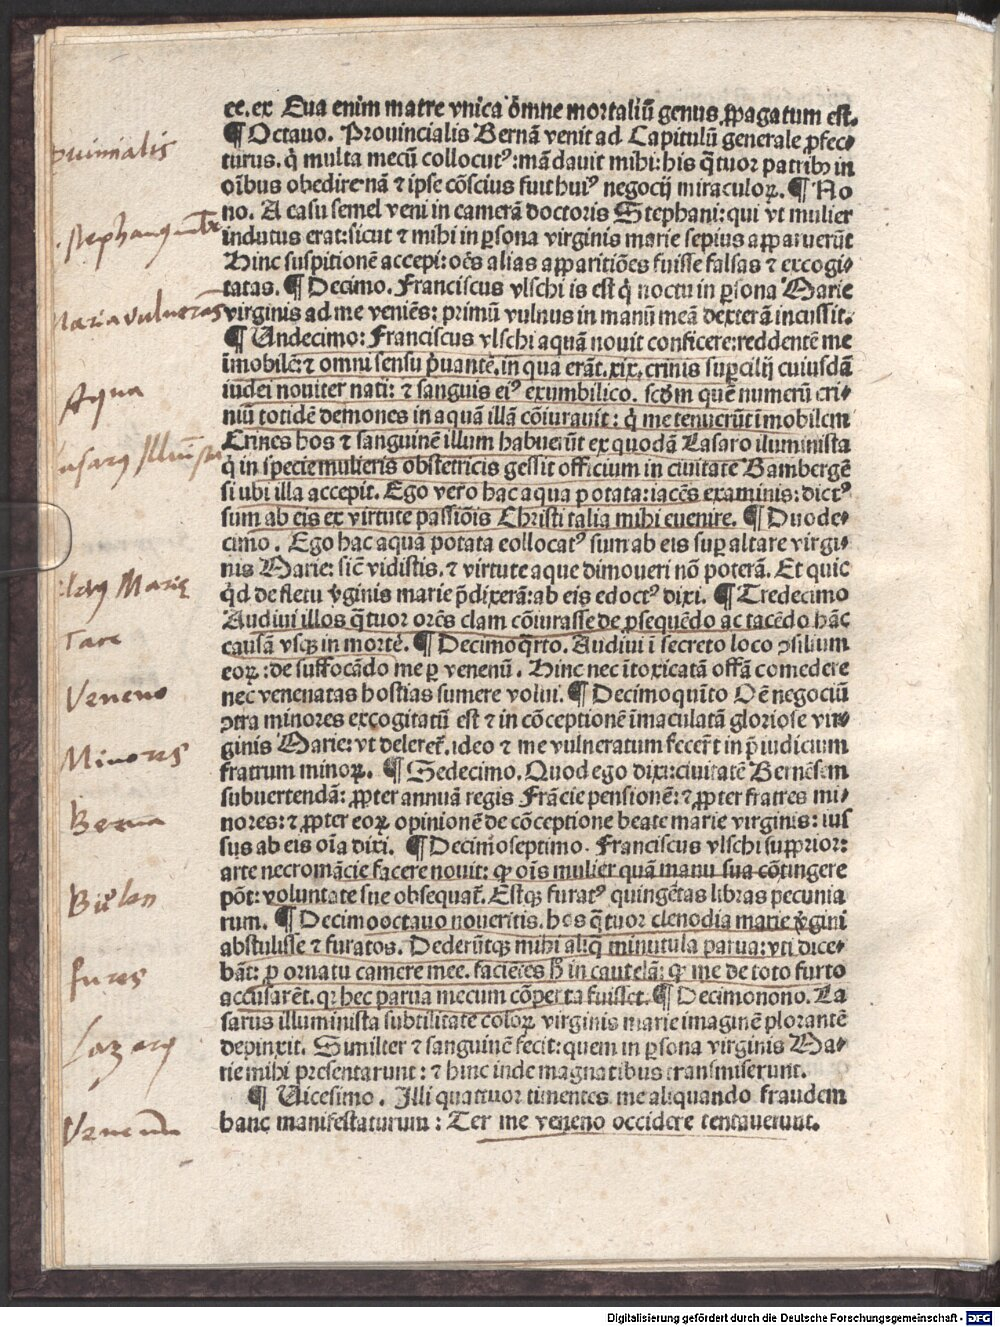 ee. ex Eua enim matre vnica ōmne mortaliū genus ꝓpagatum est.
¶ Octauo. Prouincialis Bernā venit ad Capitulū generale ꝓfec⸗
turus. q̇ multa mecū collocutꝰ: mādauit mihi: his q̄tuor patribꝫ in
oībus obedire nā ⁊ ipse cōscius fuit huiꝰ negocij miraculoꝝ. ¶ No
no. A casu semel veni in camerā doctoris Stephani: qui vt mulier
indutus erat: sicut ⁊ mihi in ꝑsona virginis marie sepius apparuerūt
Hinc suspitionē accepi: oēs alias apparitiōes fuisse falsas ⁊ excogi⸗
tatas. ¶ Decimo. Franciscus vlschi is est q̇ noctu in ꝑsona Marie
virginis ad me veniēs: primū vulnus in manū meā dexterā incussit.
¶ Undecimo: Franciscus vlschi aquā nouit conficere: reddentē me
īmobilē: ⁊ omni sensu p̄uantē. in qua erāt. xix. crinis suꝑcilij cuiusdā
iudei nouiter nati: ⁊ sanguis eiꝰ ex umbilico. scḋm quē numerū cri⸗
niū totidē demones in aquā illā cōiurauit: q̇ me tenuerūt īmobilem
Crines hos ⁊ sanguinē illum habuerūt ex quodā Lasaro iluminista
q̇ in specie mulieris obstetricis gessit officium in ciuitate Bambergē
si ubi illa accepit. Ego vero hac aqua potata: iacēs examinis: dictꝰ
sum ab eis ex virtute passiōis Christi talia mihi euenire. ¶ Duode⸗
cimo. Ego hac aqua potata collocatꝰ sum ab eis suꝑ altare virgi⸗
nis Marie: sicē vidistis. ⁊ virtute aque dimoueri nō poterā. Et quic
q̇d de fletu v̇ginis marie p̄dixerā: ab eis edoctꝰ dixi. ¶ Tredecimo
Audiui illos q̄tuor orēs clam cōiurasse de ꝑsequēdo ac tacēdo hāc
causā vsqꝫ in mortē. ¶ Decimoq̄rto. Audiui ī secreto loco ꝯsilium
eoꝝ: de suffocādo me ꝑ venenū. Hinc nec ītoxicatā offā comedere
nec venenatas hostias sumere volui. ¶ Decimoquīto Oē negociū
ꝯtra minores excogitatū est ⁊ in cōceptionē īmaculatā gloriose vir⸗
ginis Marie: vt deleret̄. ideo ⁊ me vulneratum fecer̄t in p̄iudicium
fratrum minoꝝ. ¶ Sedecimo. Quod ego dixi: ciuitatē Bernēsem
subuertendā: ꝓpter annuā regis Frācie pensionē: ⁊ ꝓpter fratres mi⸗
nores: ⁊ ꝓpter eoꝝ opinionē de cōceptione beate marie virginis: ius
sus ab eis oīa dixi. ¶ Decimoseptimo. Franciscus vlschi supprior:
arte necromācie facere nouit: ꝙ oīs mulier quā manu sua cōtingere
pōt: voluntate sue obsequat̄. Estqꝫ furatꝰ quingētas libras pecunia
rum. ¶ Decimooctauo noueritis. hos q̄tuor clenodia marie v̇gini
abstulisse ⁊ furatos. Dederūtqꝫ mihi aliq̄ minutula parua: vti dice⸗
bāt: ꝑ ornatu camere mee. faciētes h̄ in cautelā: ꝙ me de toto furto
accusarēt. qꝛ hec parua mecum cōperta fuissēt. ¶ Decimonono. La
sarus illuminista subtilitate coloꝝ virginis marie imaginē plorantē
depinxit. Similter ⁊ sanguinē fecit: quem in ꝑsona virginis Ma⸗
rie mihi presentarunt: ⁊ hinc inde magnatibus transmiserunt.
¶ Uicesimo. Illi quattuor timentes me aliquando fraudem
hanc manifestaturum: Ter me veneno occidere tentauerunt.
Maria vulnerās
Aqua
Marie
Tace
Veneno
Minores
Berna
fures
Lazarꝰ
Venenū
Digitalisierung gefördert durch die Deutsche Forschungsgemeinschaft - DFG